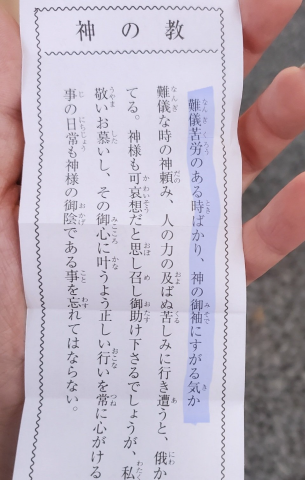 神の教
難儀苦労のある時ばかり、神の御袖にすがる気か
難儀な時の神頼み、人の力の及ばぬ苦しみに行き遭うと、俄か
てる。神様も可哀想だと思し召し御助け下さるでしょうが、私
敬いお慕いし、その御心に叶うよう正しい行いを常に心がける
事の日常も神様の御陰である事を忘れてはならない。